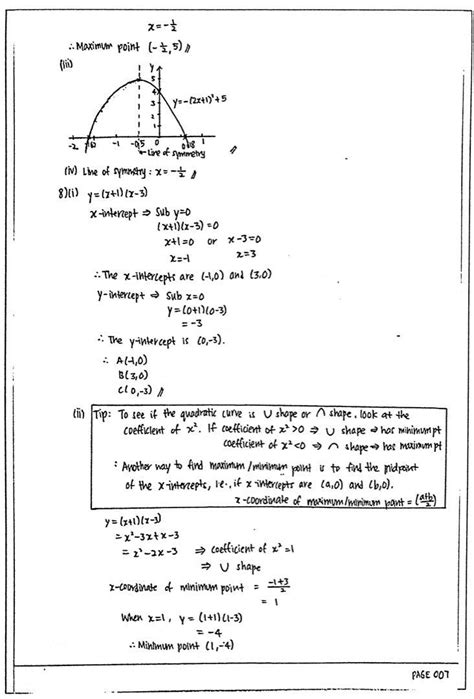 x = -1/2
∴ Maximum point (-1/2, 5) //
(iii)
y
5
4
3
2
1
y = -(2x+1)²+5
-2 -1 -0.5 0 1
← Line of symmetry //
(iv) Line of symmetry : x = -1/2 //
8)(i) y = (x+1)(x-3)
x-intercept ⇒ Sub y=0
(x+1)(x-3) = 0
x+1=0 or x-3=0
x=-1 x=3
∴ The x-intercepts are (-1,0) and (3,0)
y-intercept ⇒ Sub x=0
y = (0+1)(0-3)
= -3
∴ The y-intercept is (0,-3).
∴ A(-1,0)
B(3,0)
C(0,-3) //
(ii) Tip: To see if the quadratic curve is ∪ shape or ∩ shape, look at the
coefficient of x². If coefficient of x² >0 ⇒ ∪ shape ⇒ has minimum pt
coefficient of x² <0 ⇒ ∩ shape ⇒ has maximum pt
: Another way to find maximum/minimum point is to find the midpoint
of the x-intercepts, i.e., if x-intercepts are (a,0) and (b,0).
x-coordinate of maximum/minimum point = (a+b/2)
y = (x+1)(x-3)
= x²-3x+x-3
= x²-2x-3 ⇒ coefficient of x² = 1
⇒ ∪ shape
x-coordinate of minimum point = -1+3/2
= 1
When x=1, y = (1+1)(1-3)
= -4
∴ Minimum point (1,-4)
PAGE 007